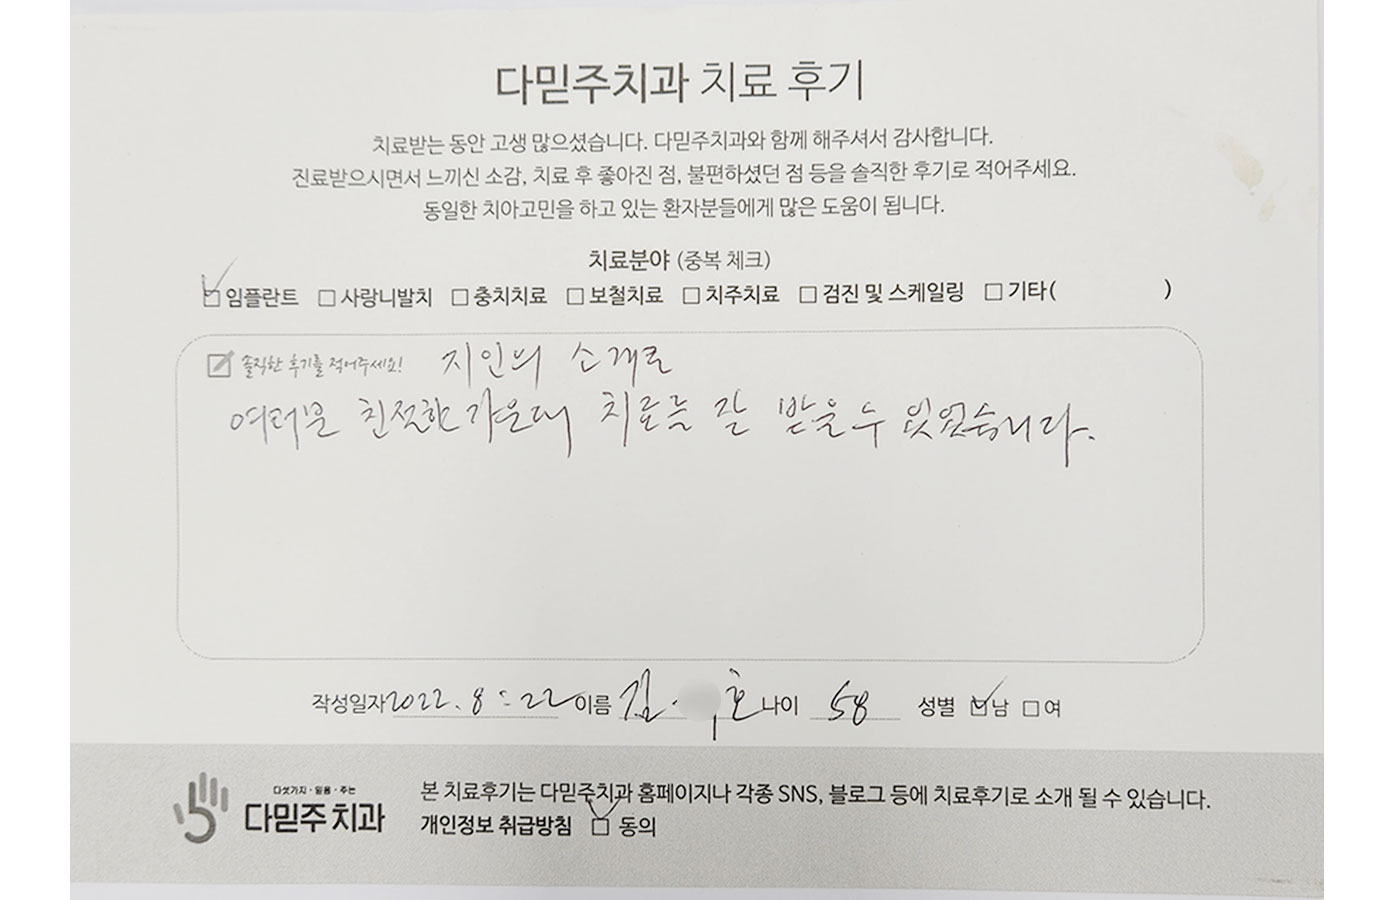 다믿주치과 치료 후기
치료받는 동안 고생 많으셨습니다. 다믿주치과와 함께 해주셔서 감사합니다.
진료받으시면서 느끼신 소감, 치료 후 좋아진 점, 불편하셨던 점 등을 솔직한 후기로 적어주세요.
동일한 치아고민을 하고 있는 환자분들에게 많은 도움이 됩니다.
치료분야 (중복 체크)
임플란트 □ 사랑니발치 □ 충치치료 □ 보철치료 □ 치주치료 □ 검진 및 스케일링 □ 기타( )
솔직한 후기를 적어주세요! 지인의 소개로
여러분 친절한 가운데 치료를 잘 받을 수 있었습니다.
작성일자 2022. 8. 22 이름 김 호 나이 58 성별 남 □ 여
다섯가지·믿음·주는
다믿주치과
본 치료후기는 다믿주치과 홈페이지나 각종 SNS, 블로그 등에 치료후기로 소개 될 수 있습니다.
개인정보 취급방침 동의